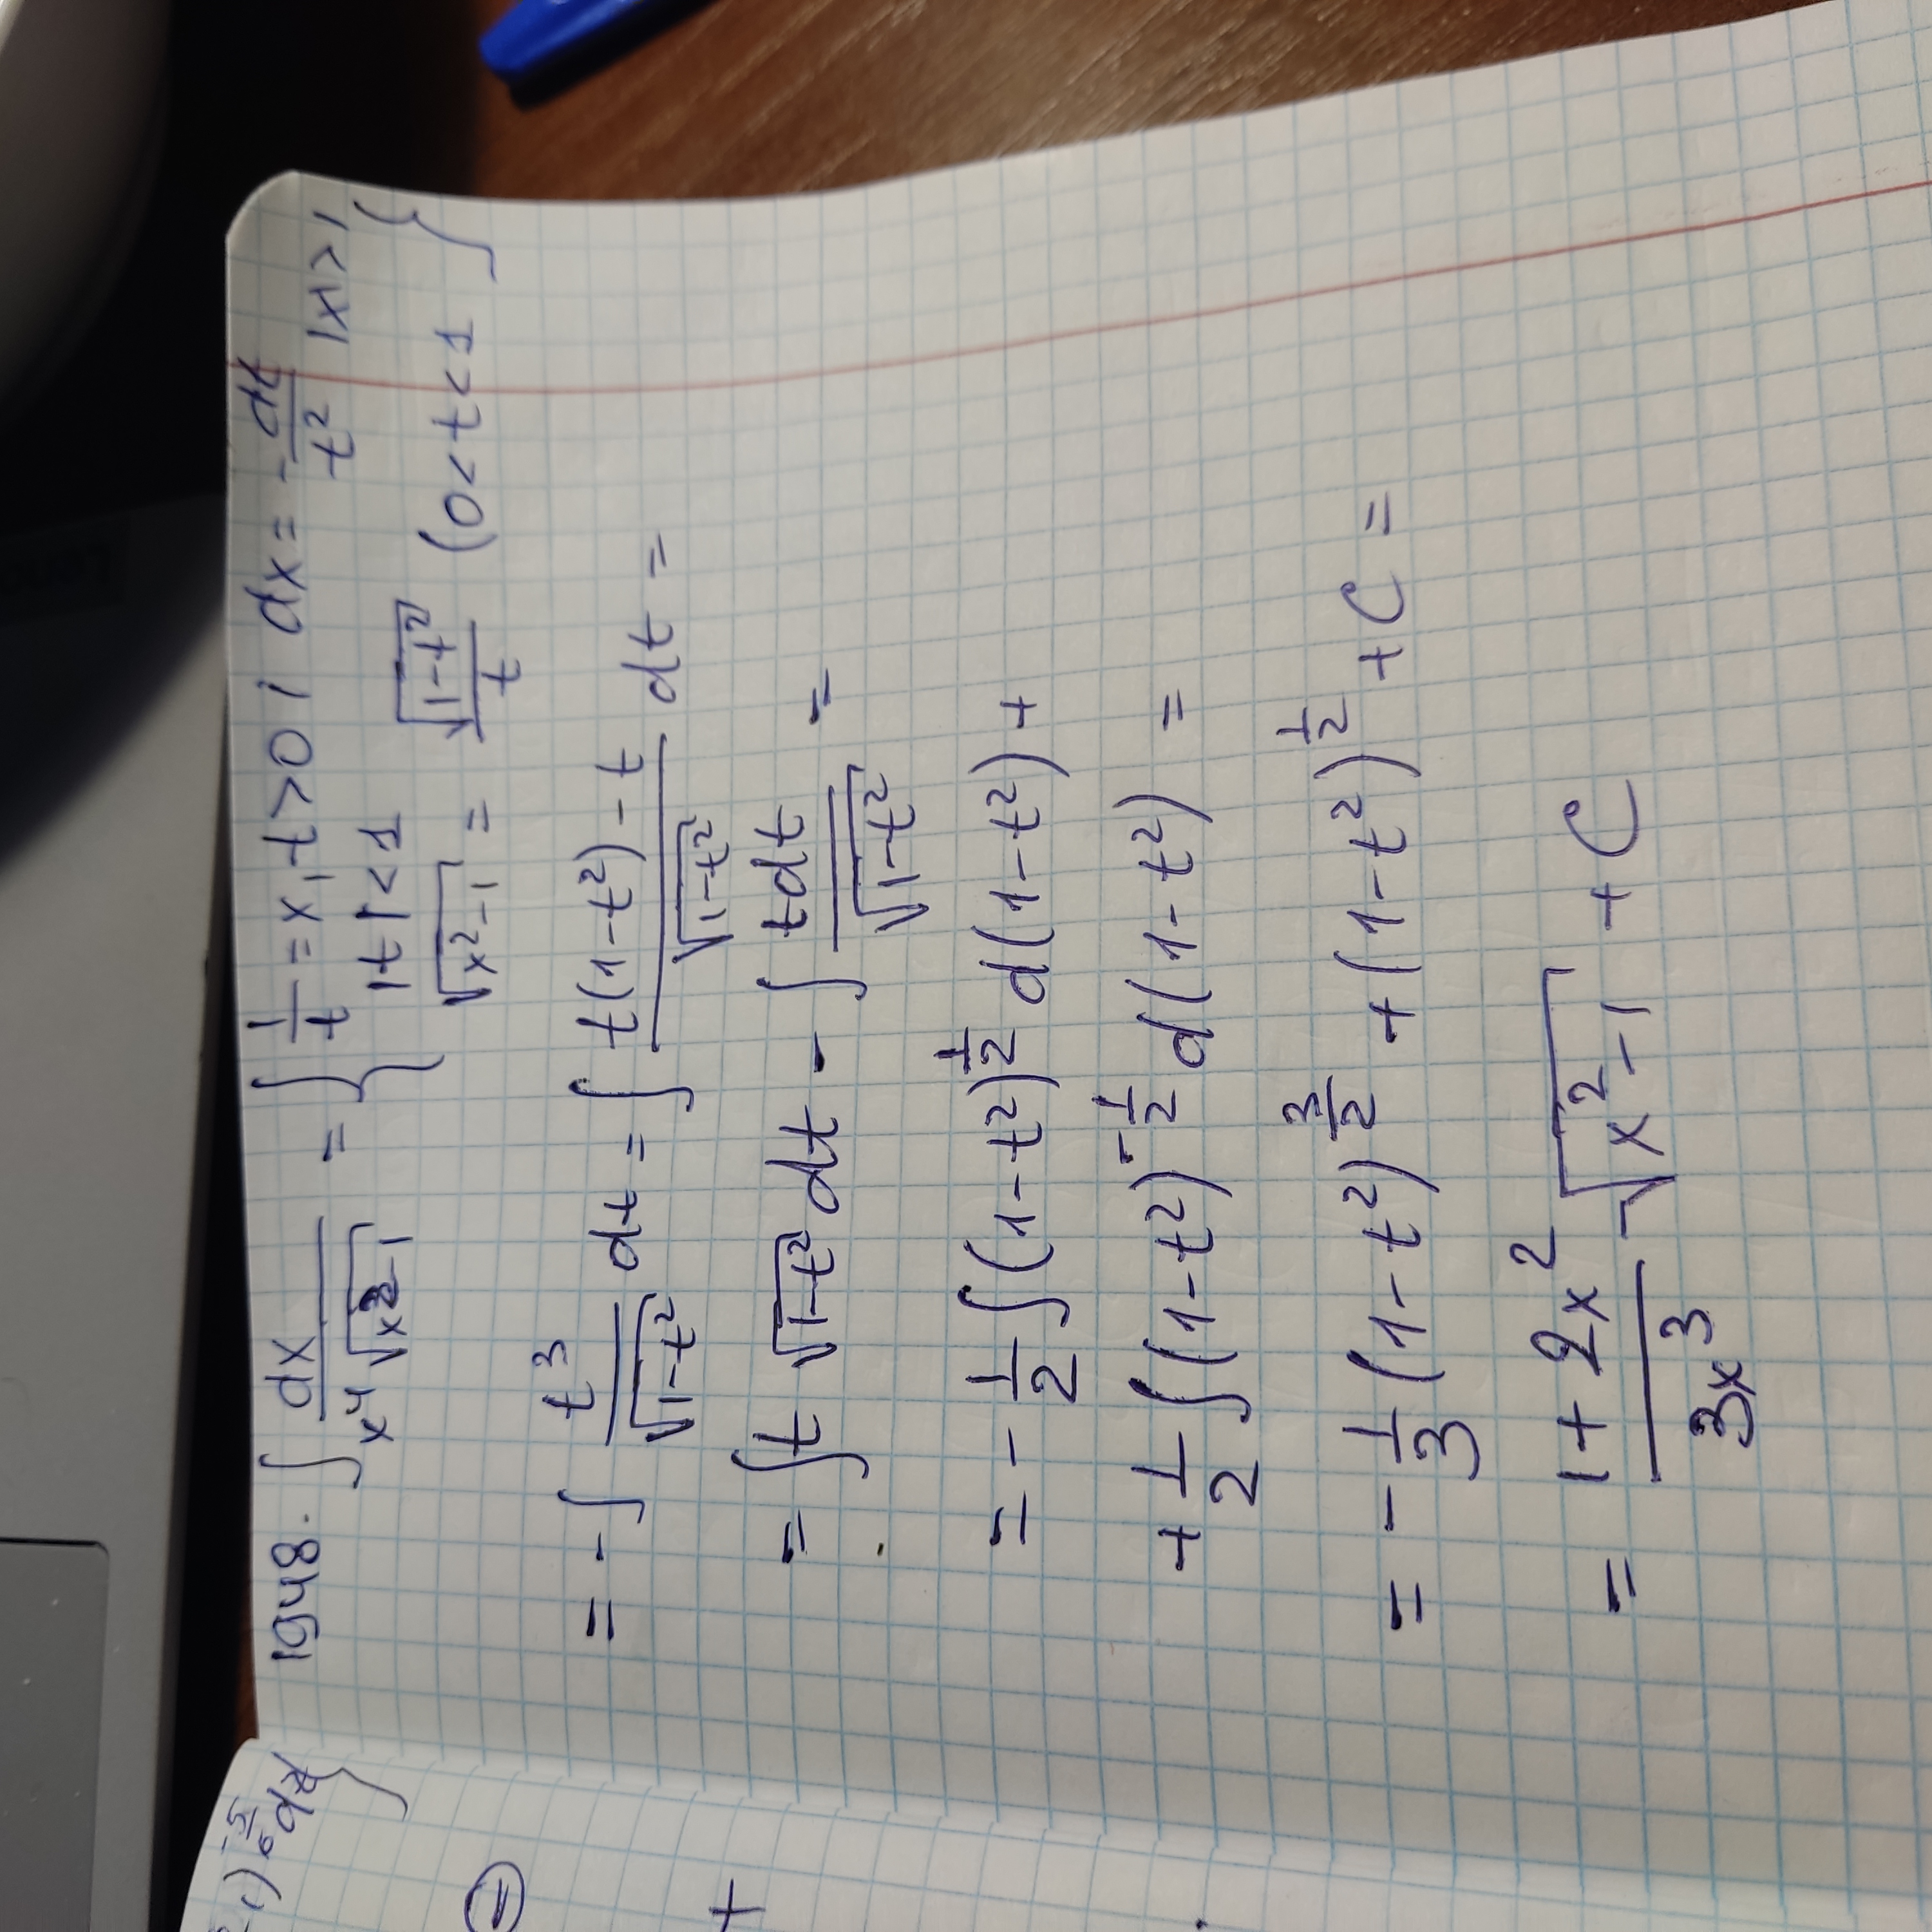 1948. ∫ dx / (x⁴ √(x²-1)) = { 1/t = x, t > 0 ; dx = - dt/t² |x| > 1
|t| < 1
√(x²-1) = √(1-t²) / t (0 < t < 1 }
= - ∫ t³ / √(1-t²) dt = ∫ (t(1-t²) - t) / √(1-t²) dt =
= ∫ t √(1-t²) dt - ∫ t dt / √(1-t²) =
= - 1/2 ∫ (1-t²)^(1/2) d(1-t²) +
+ 1/2 ∫ (1-t²)^(-1/2) d(1-t²) =
= - 1/3 (1-t²)^(3/2) + (1-t²)^(1/2) + C =
= (1 + 2x²) / (3x³) √(x²-1) + C